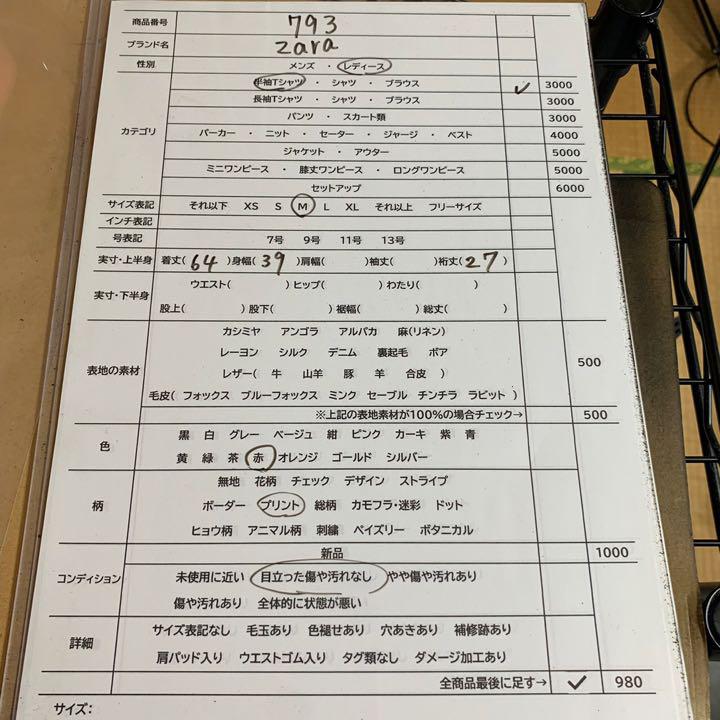 商品番号 793
ブランド名 zara
性別 メンズ ・ レディース
半袖Tシャツ ・ シャツ ・ ブラウス ✓ 3000
長袖Tシャツ ・ シャツ ・ ブラウス 3000
パンツ ・ スカート類 3000
カテゴリ パーカー ・ ニット ・ セーター ・ ジャージ ・ ベスト 4000
ジャケット ・ アウター 5000
ミニワンピース ・ 膝丈ワンピース ・ ロングワンピース 5000
セットアップ 6000
サイズ表記 それ以下 XS S M L XL それ以上 フリーサイズ
インチ表記
号表記 7号 9号 11号 13号
実寸・上半身 着丈( 64 )身幅( 39 )肩幅( )袖丈( )裄丈( 27 )
実寸・下半身 ウエスト( )ヒップ( )わたり( )
股上( )股下( )裾幅( )総丈( )
カシミヤ アンゴラ アルパカ 麻(リネン)
レーヨン シルク デニム 裏起毛 ボア
表地の素材 レザー( 牛 山羊 豚 羊 合皮 ) 500
毛皮( フォックス ブルーフォックス ミンク セーブル チンチラ ラビット )
※上記の表地素材が100%の場合チェック→ 500
色 黒 白 グレー ベージュ 紺 ピンク カーキ 紫 青
黄 緑 茶 赤 オレンジ ゴールド シルバー
無地 花柄 チェック デザイン ストライプ
柄 ボーダー プリント 総柄 カモフラ・迷彩 ドット
ヒョウ柄 アニマル柄 刺繍 ペイズリー ボタニカル
新品 1000
コンディション 未使用に近い 目立った傷や汚れなし やや傷や汚れあり
傷や汚れあり 全体的に状態が悪い
詳細 サイズ表記なし 毛玉あり 色褪せあり 穴あきあり 補修跡あり
肩パッド入り ウエストゴム入り タグ類なし ダメージ加工あり
全商品最後に足す→ ✓ 980
サイズ：